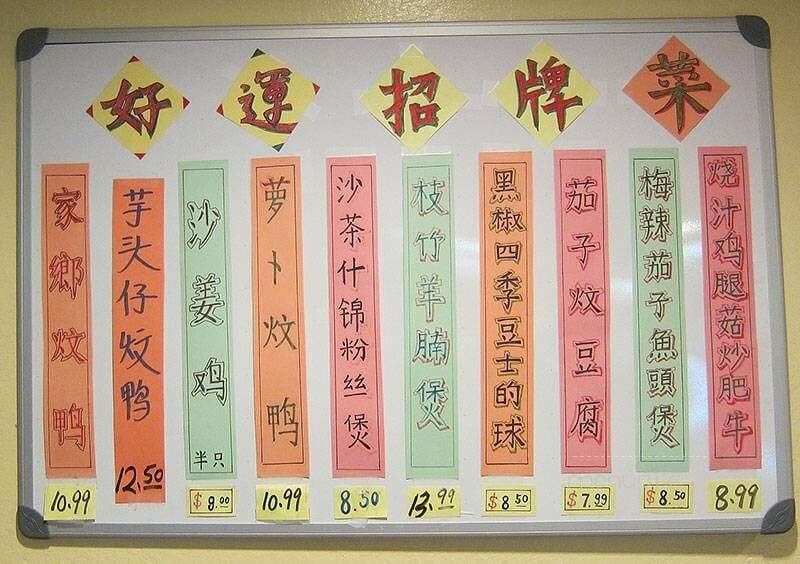 好運招牌菜
家鄉炆鸭
10.99
芋头仔炆鸭
12.50
沙姜鸡
半只
$ 8.00
萝卜炆鸭
10.99
沙茶什锦粉丝煲
8.50
枝竹羊腩煲
13.99
黑椒四季豆士的球
$ 8.50
茄子炆豆腐
$ 7.99
梅辣茄子魚頭煲
$ 8.50
烧汁鸡腿菇炒肥牛
8.99